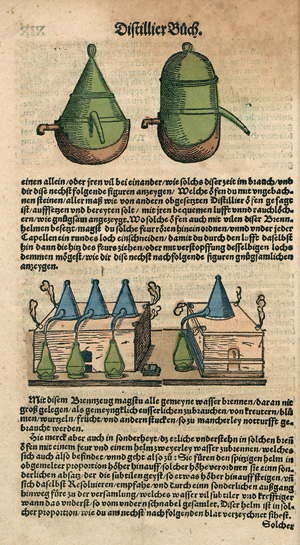 Distillier Bůch.
einen allein/oder jren vil bei einander/wie solchs diser zeit im brauch/vnd
dir dise nechst folgende figuren anzeygen. Welche öfen du mit vngebach-
nen steinen/aller maß wie von andern obgesetzten Distillier öfen gesagt
ist/auffsetzen vnd bereyten solt/mit jren bequemen lufft vnnd rauchlöch-
ern/wie gnůgsam angezeygt. Wo solche öfen auch mit vilen diser Brenn-
helmen besetzt/magst du solche feur öten hinein ordnen/vnnd vnder jeder
Capellen ein rundes loch einschneiden/damit du durch den lufft daselbst
hin dann die hitz des feurs ziehen/oder mit verstopffung desselbigen lochs
demmen mögest/wie dir dise nechst nachfolgende figuren gnůgsamlichen
anzeygen.
Mit disem Brennzeug magstu alle gemeyne wasser brennen/daran nit
groß gelegen/als gemeyngklich eusserlichen zubrauchen/von kreutern/blů
men/wurtzeln/frücht/vnd andern stucken/so zu mancherley notturfft ge-
braucht werden.
Hie merck aber auch in sonderheyt/dz etliche vnderstehn in solchen bren
öfen mit einem feur vnd einem helm zweyerley wasser zubrennen/welchs
sich auch also befindet/vnnd geht also zů: Sie füren den spitzigen helm in
obgemelter proportion höher hinauff/solcher höhe verordnen sie einn son-
derlichen absatz/der die subtilen geyst/so etwas höher hinauff steigen/vñ
sich daselbst Resoluieren/empfahe/vnd durch einn sonderlichen außgang
hinweg füre zu der versamlung/welches wasser vil subtiler vnd krefftiger
wann das vnderst/so vom vndern schnabel gesamlet. Diser helm ist in sol-
cher proportion/wie du am nechst nachfolgenden blat verzeychnet sihest.
Solcher